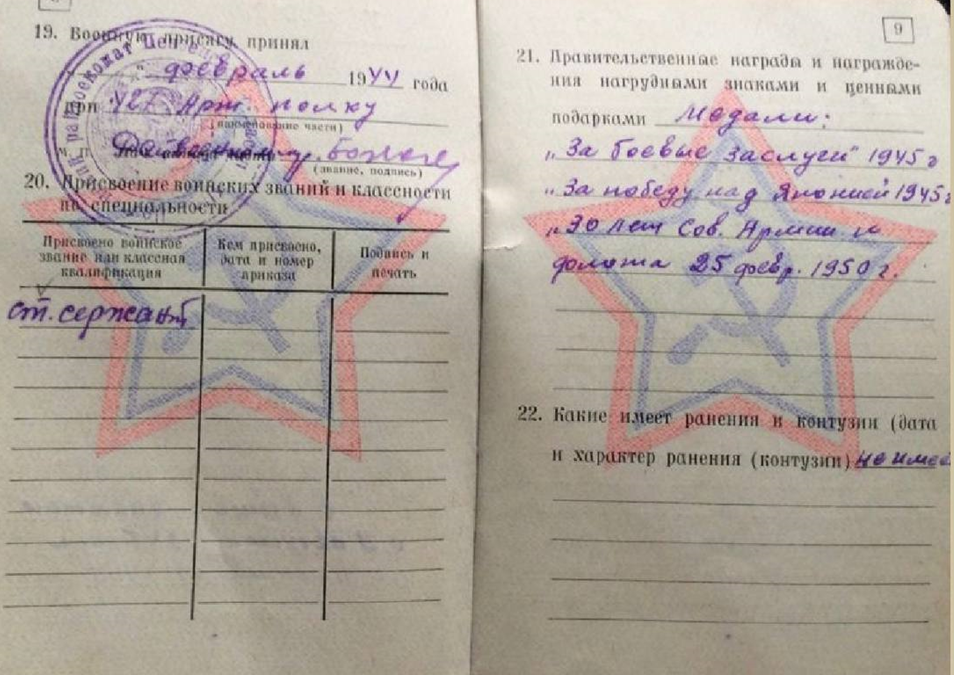 19. Военную присягу принял
" " февраль 1944 года
при Арт. полку
(наименование части)
м. п.
(звание, подпись)
20. Присвоение воинских званий и классности
по специальности
Присвоено воинское звание или классная квалификация
Кем присвоено, дата и номер приказа
Подпись и печать
ст. сержант
9
21. Правительственные награды и награжде-
ния нагрудными знаками и ценными
подарками Медали:
„За боевые заслуги" 1945 г
„За победу над Японией 1945г
„30 лет Сов. Армии и
флота 25 февр. 1950 г.
22. Какие имеет ранения и контузии (дата
и характер ранения (контузии) не имее